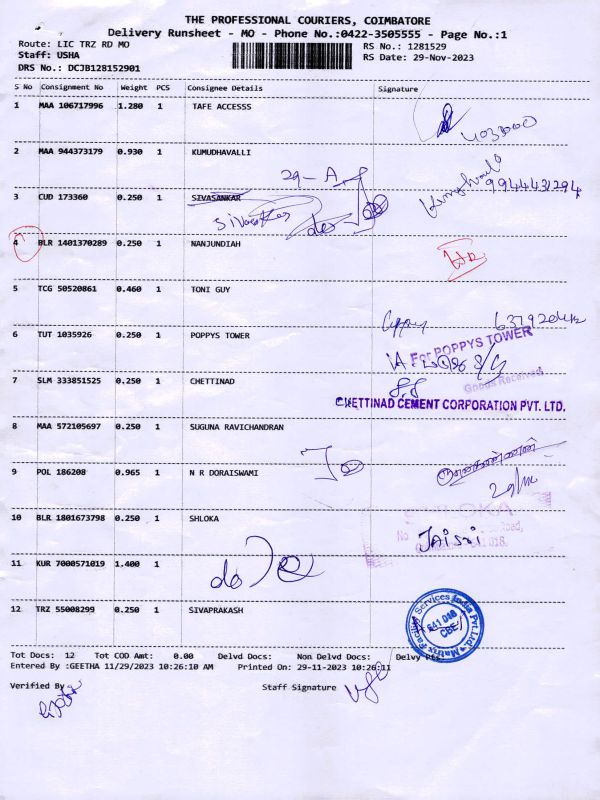 THE PROFESSIONAL COURIERS, COIMBATORE
Delivery Runsheet - MO - Phone No.:0422-3505555 - Page No.:1
Route: LIC TRZ RD MO
RS No.: 1281529
Staff: USHA
RS Date: 29-Nov-2023
DRS No.: DCJB128152901
S No Consignment No Weight PCS Consignee Details Signature
1 MAA 106717996 1.280 1 TAFE ACCESSS
2 MAA 944373179 0.930 1 KUMUDHAVALLI
9944431294
3 CUD 173360 0.250 1 SIVASANKAR
4 BLR 1401370289 0.250 1 NANJUNDIAH
5 TCG 50520861 0.460 1 TONI GUY
6 TUT 1035926 0.250 1 POPPYS TOWER
For POPPYS TOWER
7 SLM 333851525 0.250 1 CHETTINAD
Goods Received
CHETTINAD CEMENT CORPORATION PVT. LTD.
8 MAA 572105697 0.250 1 SUGUNA RAVICHANDRAN
9 POL 186208 0.965 1 N R DORAISWAMI
10 BLR 1801673798 0.250 1 SHLOKA
JAISRI
11 KUR 7000571019 1.400 1
12 TRZ 55008299 0.250 1 SIVAPRAKASH
Matrix Facility Services India Pvt.Ltd.
641 018
CBE
Tot Docs: 12 Tot COD Amt: 0.00 Delvd Docs: Non Delvd Docs:
Entered By :GEETHA 11/29/2023 10:26:10 AM Printed On: 29-11-2023 10:26:11
Verified By
Staff Signature